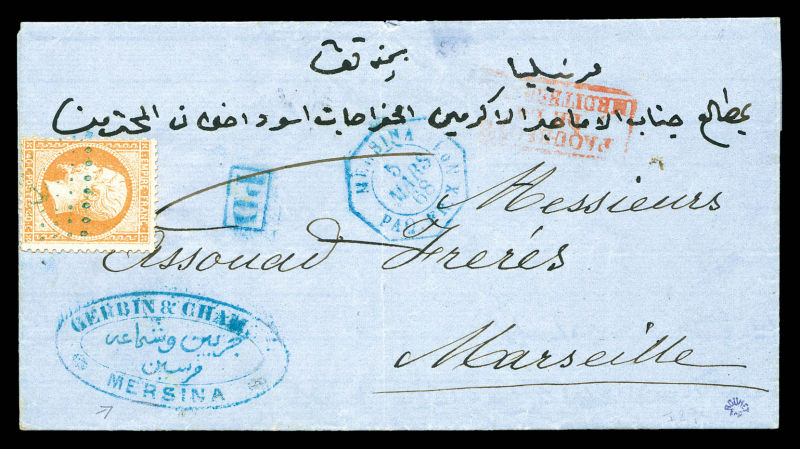 بمنه تعالى
مرسيليا
يطالع جناب الاماجد الاكرمين الخواجات اسود اخوان المحترمين
PAQUE
MERSINA
5
MARS
68
PD
Messieurs
Assouad Freres
Marseille
GERBIN & CHAM
جربين وشماعه
مرسين
MERSINA
EMPIRE FRANC